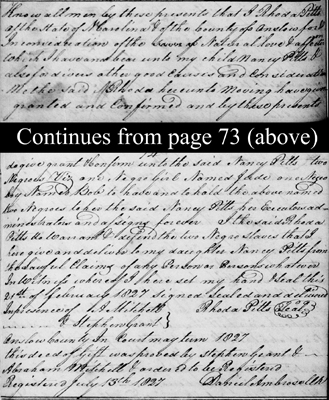 Know all men by these presents that I Rhoda Pitts
of the State of N Carolina & of the County of Onslow for &
In consideration of the Natural love & affection
Which I have and bear unto my child Nancy Pitts &
also for divers other good Causes and Consideration
Me the said Rhoda hereunto Moving have given
granted and Confirmed and by these presents
Continues from page 73 (above)
74
do give grant & Confirm unto the said Nancy Pitts two
Negroes Viz one Negro Girl Named Jude one Negro
boy Named Bob to have and to hold the above named
two Negroes to her the said Nancy Pitts her Executors ad-
ministrators and assigns forever I the said Rhoda
Pitts do Warrant & defend the two Negro slaves that I
give and deliver to my daughter Nancy Pitts from
the lawful Claims of any Person or Persons whatever
In testimony whereof I have set my hand & seal this
21st of February 1827 signed Sealed and delivered
In presence of Rhoda Pitts Seal
& Stephen Grant
Onslow County In Court may term 1827
this deed of Gift was proved by Stephen Grant &
Abraham Mitchell & ordered to be Registered
Registered July 13th 1827 Daniel Ambrose